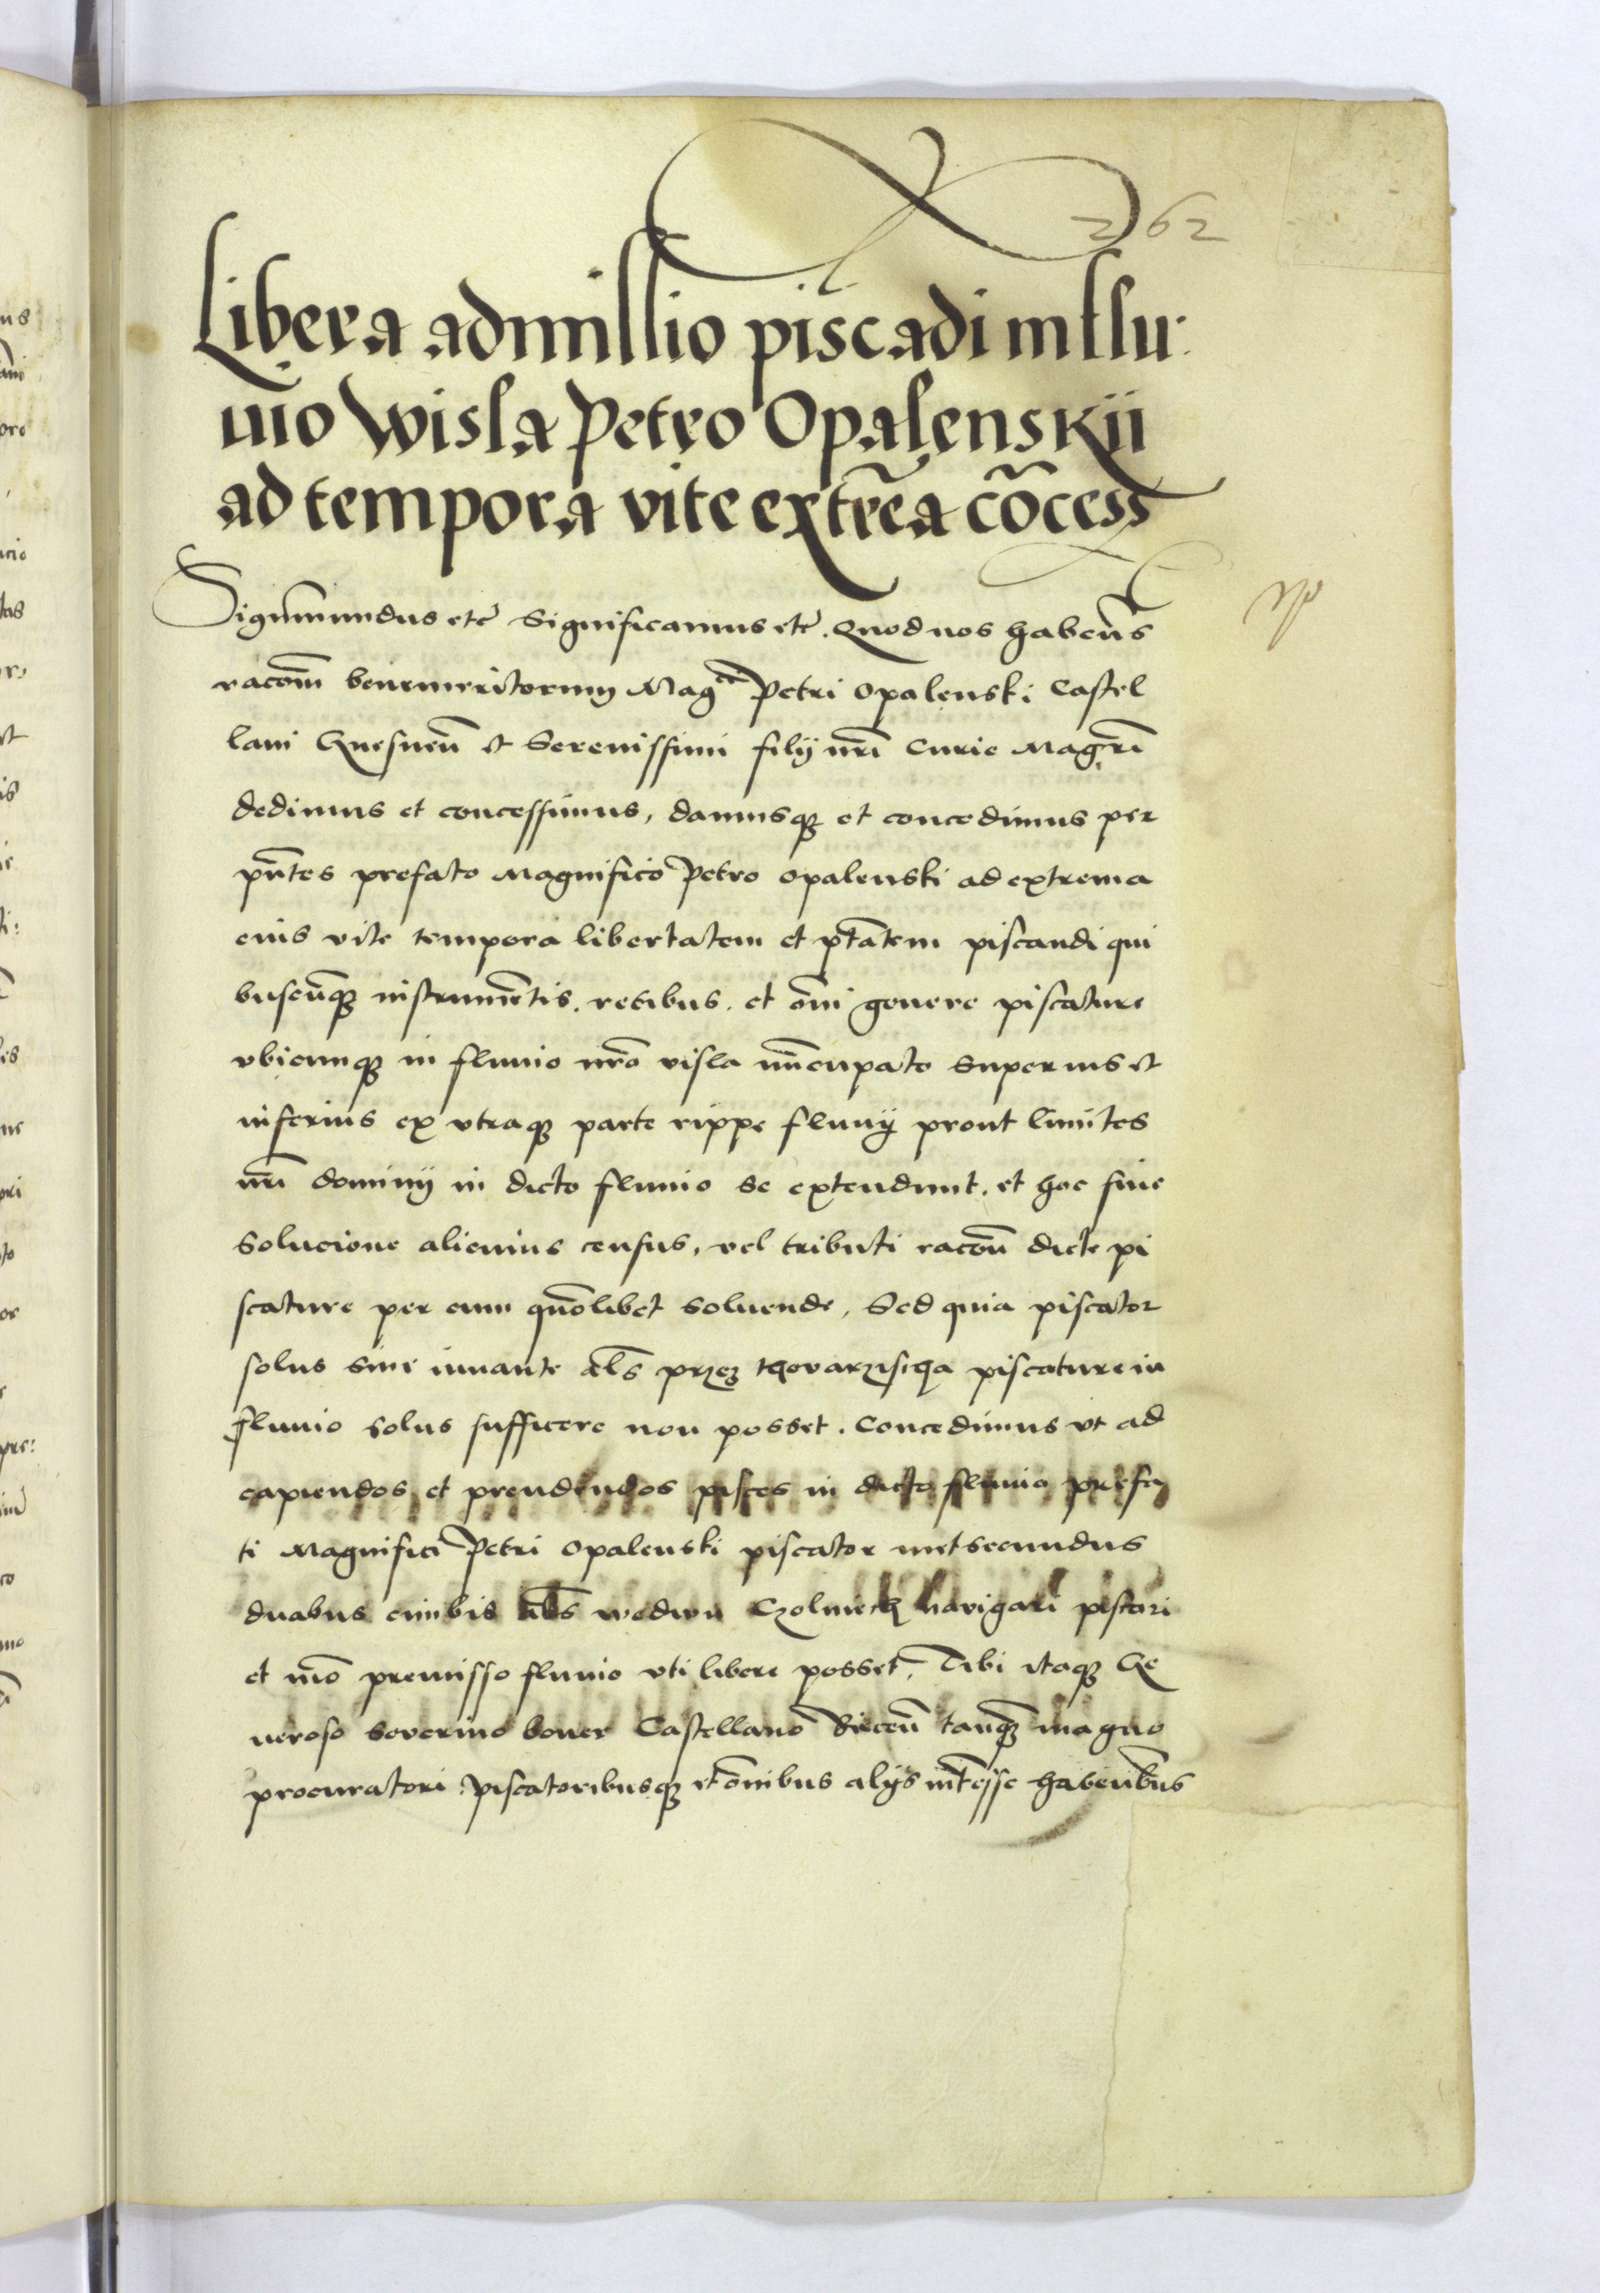 262
Libera admissio piscādi in flu:
uio Wisla Petro Opalenskij
ad tempora vite extrēa cōcess
Sigismundus etc̄ Significamus etc̄. Quod nos habeñs
racōm̄ benemeritorum Magci Petri Opalenski Castel
lani Gnesneñ et Serenissimi filij nr̄i Curie Magr̄i
dedimus et concessimus, damusq̧ et concedimus per
pn̄tes prefato Magnifico Petro Opalenski ad extrema
eius vite tempora libertatem et ptātem piscandi qui
buscūq̧ instrumētis, retibus, et om̄i genere piscature
vbicunq̧ in fluuio nr̄o visla nūcupato superius et
inferius ex vtraq̧ parte rippe fluuij prout limites
nr̄i dominij in dicto fluuio se extendunt, et hoc sine
solucione alicuius census, vel tributi racōn̄ dicte pi
scature per eum quōlibet soluende, Sed quia piscator
solus sine iuuante al̄s przez thovarzischa piscature in
fluuio solus sufficere non posset. Concedimus vt ad
capiendos et prendendos pisces in dicto fluuio prefa
ti Magnifici Petri Opalenski piscator metsecundus
duabus cimbis al̄s wedwu Czolnech navigari piscari
et mō premisso fluuio vti libere posset, Tibi itaq̧ Ge
neroso Soverino boner Castellano Bieceñ tanq̧ magno
procuratori: piscatoribusq̧ et om̄ibus alijs int̄esse habentibus